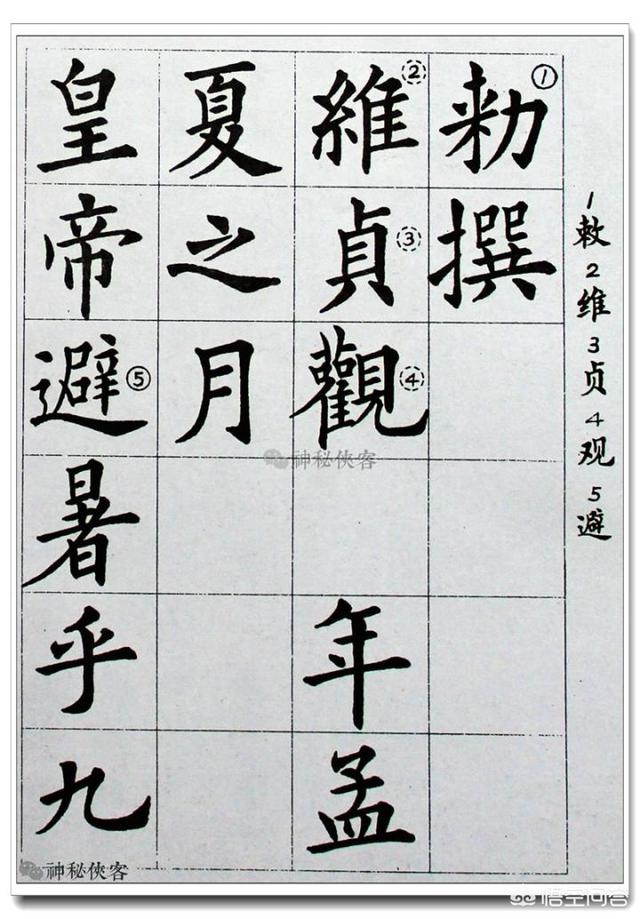 勑①撰
維②貞③觀④年孟
夏之月
皇帝避⑤暑乎九
1敕2维3贞4观5避
神秘俠客
神秘俠客
悟空问答